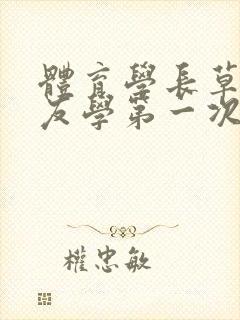 體育學長草
友學第一次
權忠敏